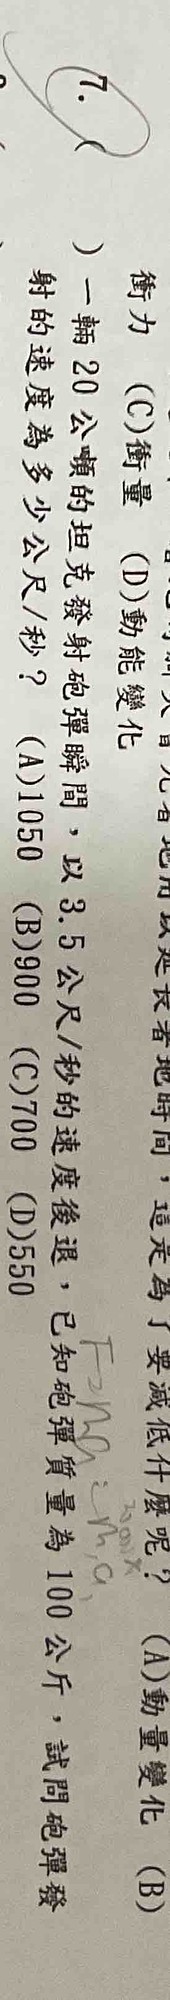 間，這是為了要減低什麼呢？ (A)動量變化 (B)
衝力 (C)衝量 (D)動能變化
7. ( ) 一輛 20 公噸的坦克發射砲彈瞬間，以 3.5 公尺/秒的速度後退，已知砲彈質量為 100 公斤，試問砲彈發
射的速度為多少公尺/秒？ (A)1050 (B)900 (C)700 (D)550
F=ma